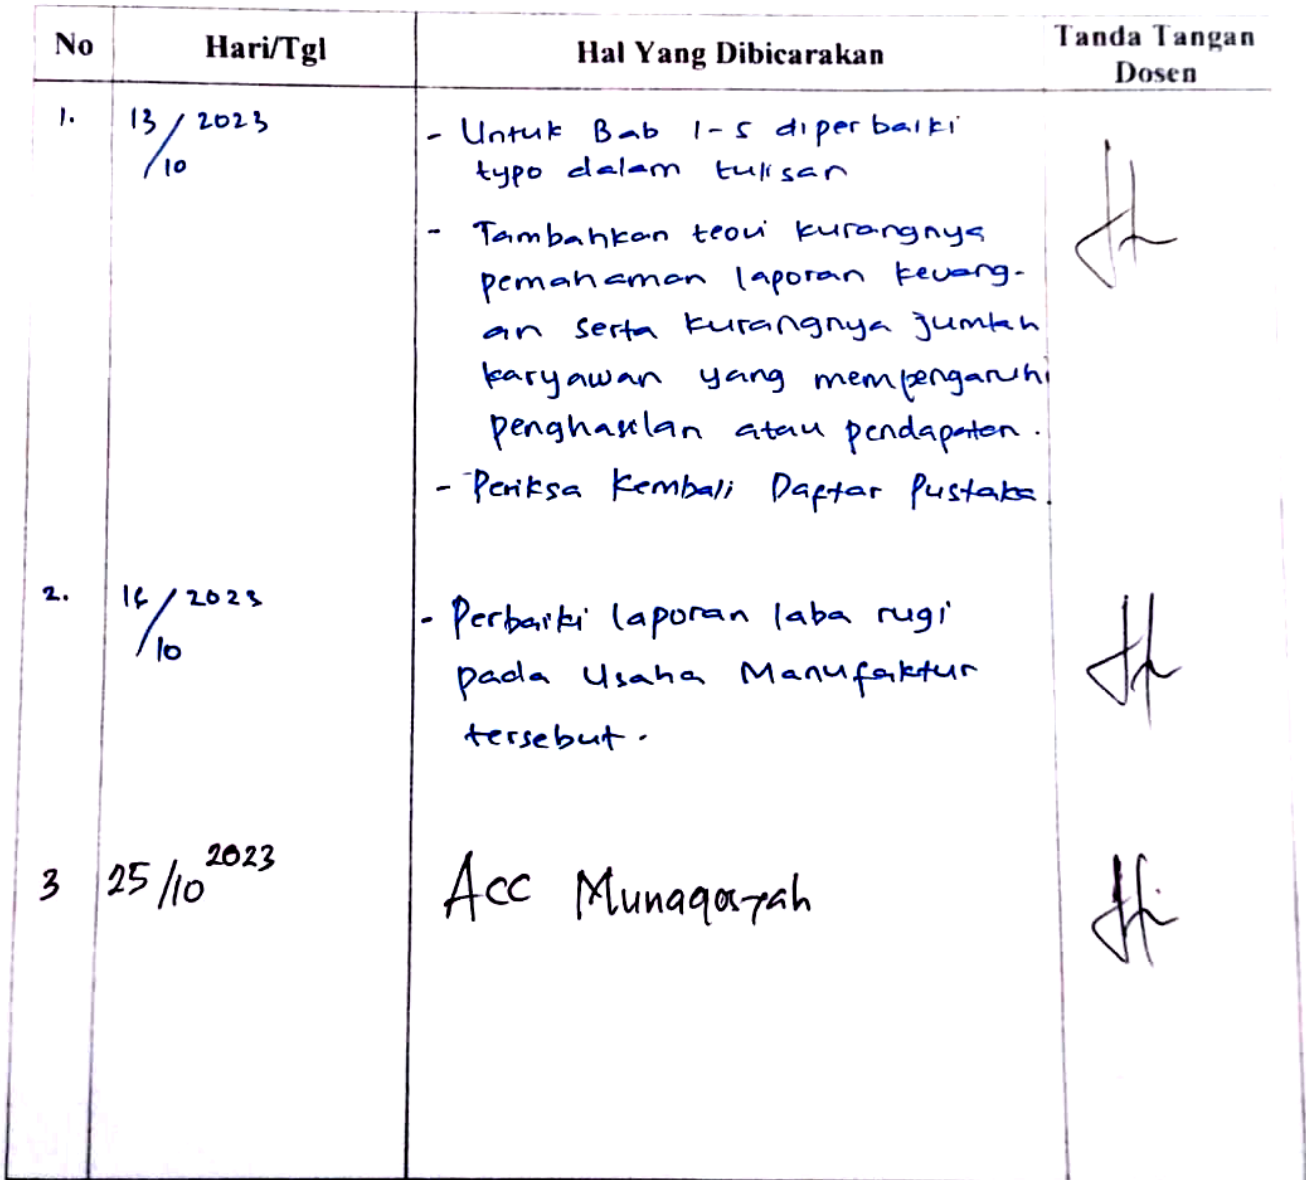 No Hari/Tgl Hal Yang Dibicarakan Tanda Tangan Dosen
1. 13/10 2023 - Untuk Bab 1-5 diperbaiki
typo dalam tulisan
- Tambahkan teori kurangnya
pemahaman laporan keuang-
an serta kurangnya jumlah
karyawan yang mempengaruhi
penghasilan atau pendapatan.
- Periksa Kembali Daftar Pustaka.
2. /10 2023 - Perbaiki laporan laba rugi
pada Usaha Manufaktur
tersebut.
3 25/10 2023 Acc Munaqasyah